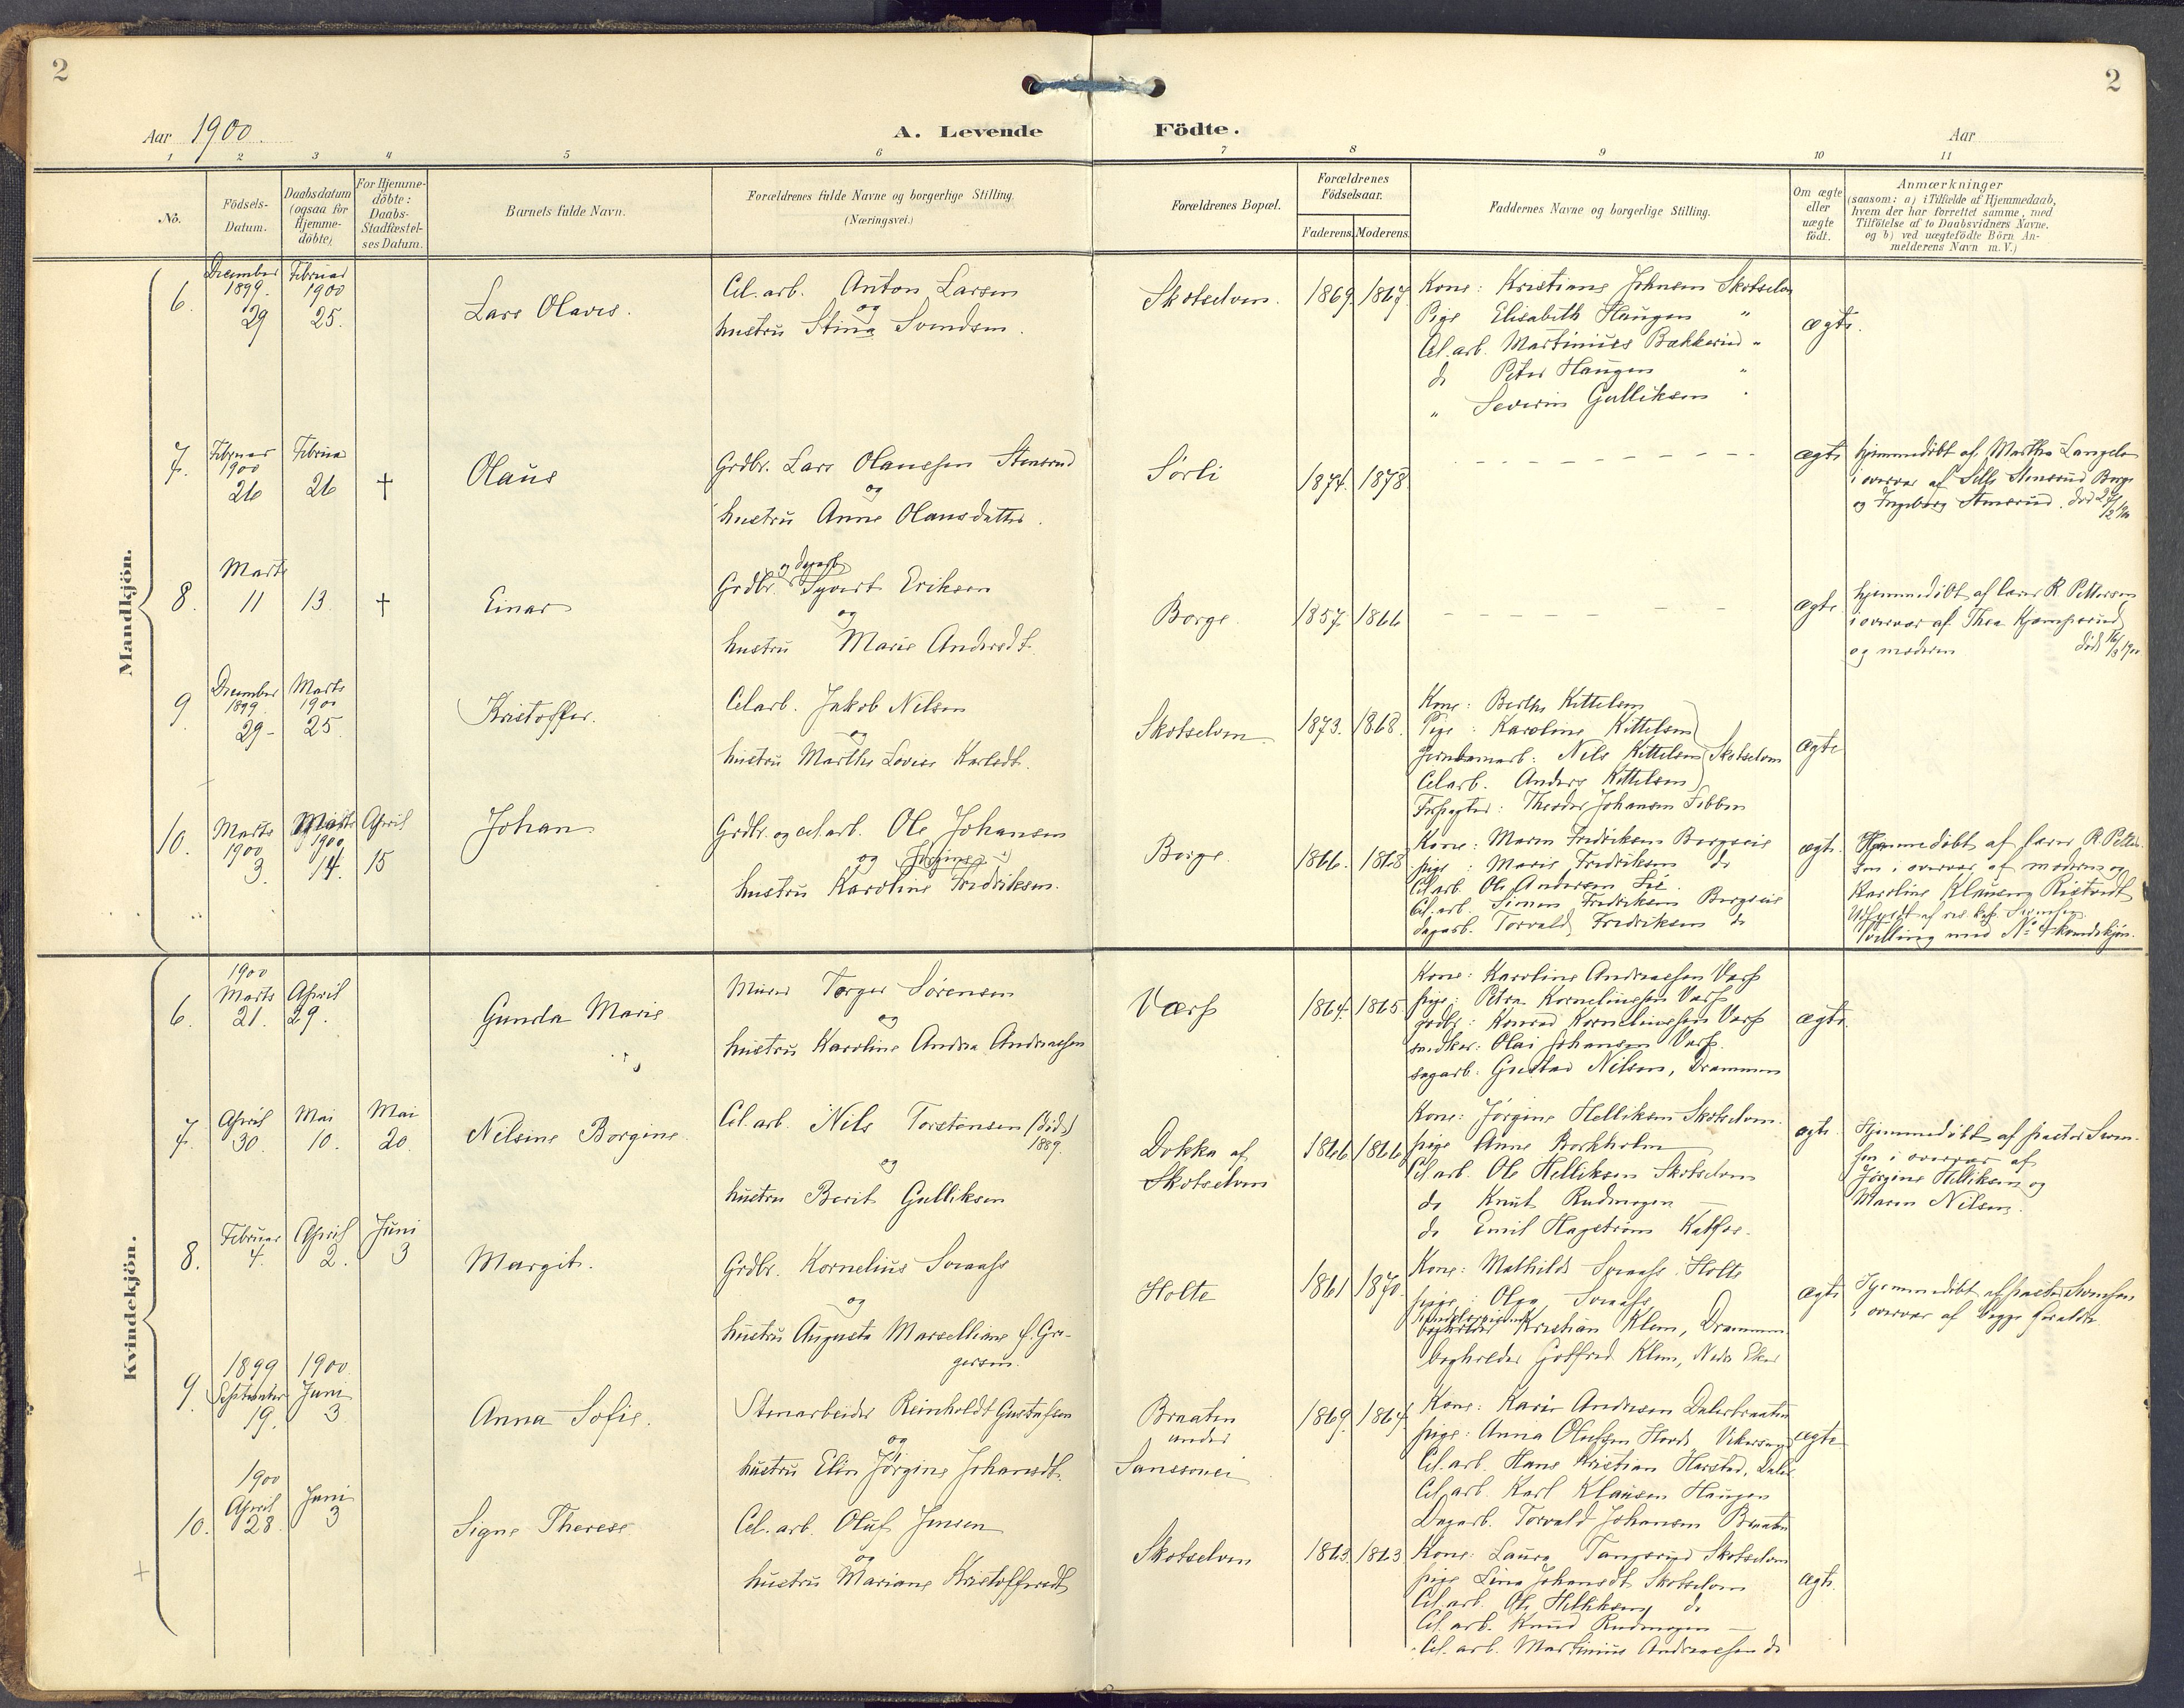 2
2
Aar 1900.
A. Levende Födte.
Aar
1 2 3 4 5 6 7 8 9 10 11
No.
Födsels-
Datum.
Daabsdatum
(ogsaa for
Hjemme-
döbte)
For Hjemme-
döbte:
Daabs-
Stadfæstel-
ses Datum.
Barnets fulde Navn.
Forældrenes fulde Navne og borgerlige Stilling.
(Næringsvei.)
Forældrenes Bopæl.
Forældrenes
Födselsaar.
Faderens. Moderens.
Faddernes Navne og borgerlige Stilling.
Om ægte
eller
uægte
födt.
Anmærkninger
(saasom: a) i Tilfælde af Hjemmedaab,
hvem der har forrettet samme, med
Tilföielse af to Daabsvidners Navne.
og b) ved uægtefödte Börn An-
melderens Navn m. V.)
Mandkjön.
6.
December
1899.
29
Februar
1900
25.
Lars Olaves.
Cel. arb. Anton Larsen
og
hustru Stina Svendsen.
Skotselven.
1869. 1867
Kone: Kristiane Johnsen Skotselv
Pige Elisabeth Haugen "
Cel. arb. Martinius Bækkerud "
do Peter Haugen "
" Severin Gulliksen "
ægte.
7.
Februar
1900
26
Februar
26
†
Olaus
Grdbr. Lars Olaussen Stensrud
og
hustru Anne Olausdatter.
Sörli
1874. 1878.
ægte
hjemmedöbt af Martha Langelo
i overvær af Stensrud Borge
og Ingeborg Stensrud. död
8.
Marts
11
13
†
Einar
og dagarb.
Grdbr. Syvert Eriksen
og
hustru Marie Andersdt.
Borge
1857. 1866
ægte
hjemmedöbt af lærer R. Pettersen
i overvær af Thea Kjemperud
og moderen död 16/3 1900
9
December
1899
29
Marts
1900
25
Kristoffer.
Cel arb. Jakob Nilsen
og
hustru Marthe Lovise Karlsdt.
Skotselven
1873. 1868.
Kone: Berthe Kittelsen
Pige: Karoline Kittelsen
Jernbanearb: Nils Kittelsen Skotselven
Cel arb. Anders Kittelsen
Theodor Johansen Fibben
ægte
10.
Marts
1900
3.
Marts
1900
14.
April
15
Johan
Grdbr. og cel. arb. Ole Johansen
og Jörgine
hustru Karoline Fredriksen.
Borge.
1866. 1868
Kone: Maren Fredriksen Borgeeie
pige: Marie Fredriksen do
Cel. arb. Ole Andersen
Cel. arb. Simen Fredriksen Borgeeie
dagarb. Torvald Fredriksen do
ægte.
Hjemmedöbt af lærer R. Petter-
sen i overvær af moderen og
Karoline Klausen
af res. kap. Svensen
Tvilling med No 4 kvindekjön.
Kvindekjön.
6.
1900
Marts
21.
April
29.
Gunda Marie
Murer Torger Sörensen
og
hustru Karoline Andrea Andreassen
Værp
1864. 1865
Kone: Karoline Andreassen Værp
pige: Petra Korneliussen Værp
grdbr: Konrad Korneliussen Værp
snedker: Olai Johansen Værp.
sagarb: Gustav Nilsen, Drammen
ægte.
7.
April
30.
Mai
10.
Mai
20.
Nilsine Borgine.
Cel. arb. Nils Torstensen (död)
1889.
og
hustru Berit Gulliksen
Dokka af
Skotselven
1866 1866
Kone: Jörgine Helliksen Skotselven.
pige Anne Borkholm
Cel. arb. Ole Helliksen Skotselven
do Knut Rudmogen
do Emil Hagström Katfos.
ægte.
Hjemmedöbt af pastor Sven-
sen i overvær af
Jörgine Helliksen og
Maren Nilsen.
8.
Februar
4.
April
2.
Juni
3
Margit.
Grdbr. Kornelius Sveaass
og
hustru Augusta Marselliane f. Gre-
gersen.
Holte
1861 1870.
Kone: Mathilde Sveaass. Holte
pige: Olga Sveaass
Kristian Klem, Drammen
bogholder Gotfred Klem, Nedre Eker
ægte
Hjemmedöbt af pastor Svensen
i overvær af begge forældre.
9.
1899
September
19.
1900
Juni
3
Anna Sofie.
Stenarbeider Reinholdt Gustafsson
og
hustru Elin Jörgine Johansdt.
Braaten
under
Sanssouci
1869. 1864
Kone: Karin Andersen Dalerbraaten
pige: Anna Olufsen Horde, Vikersund
Cel. arb. Hans Kristian Harstad, Daler
Cel. arb. Karl Klausen Haugen
Dagarb. Torvald Johansen Braaten
ægte
10.
1900
April
28.
Juni
3
Signe Therese
Cel. arb. Oluf Jensen
og
hustru Mariane Kristoffersdt.
Skotselven
1863. 1863.
Kone: Laura Tangerud Skotselven
pige Lina Johansdt. Skotselven
Cel. arb. Ole Helliksen do
Cel. arb. Knud Rudmogen
Cel. arb. Martinius Andreassen do
ægte.